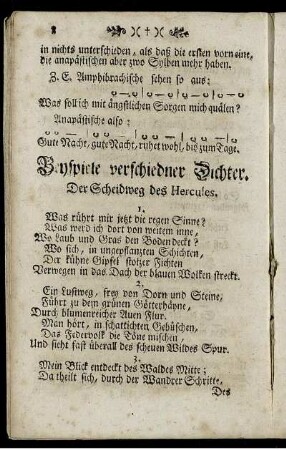 8 )( † )(
in nichts unterschieden, als daß die ersten vorn eine,
die anapästischen aber zwo Sylben mehr haben.
Z. E. Amphibrachische sehen so aus:
Was soll ich mit ängstlichen Sorgen mich quälen?
Anapästische also:
Gute Nacht, gute Nacht, ruhet wohl, bis zum Tage.
Beyspiele verschiedner Dichter.
Der Scheidweg des Hercules.
1.
Was rührt mir jetzt die regen Sinne?
Was werd ich dort von weitem inne,
Wo Laub und Gras den Boden deckt?
Wo sich, in ungepflanzten Schichten,
Der kühne Gipfel stolzer Fichten
Verwegen in das Dach der blauen Wolken streckt.
2.
Ein Lustweg, frey von Dorn und Steine,
Führt zu dem grünen Götterhayne,
Durch blumenreicher Auen Flur.
Man hört, in schattichten Gebüschen,
Das Federvolk die Töne mischen,
Und sieht fast überall des scheuen Wildes Spur.
3.
Mein Blick entdeckt des Waldes Mitte;
Da theilt sich, durch der Wandrer Schritte,
Des